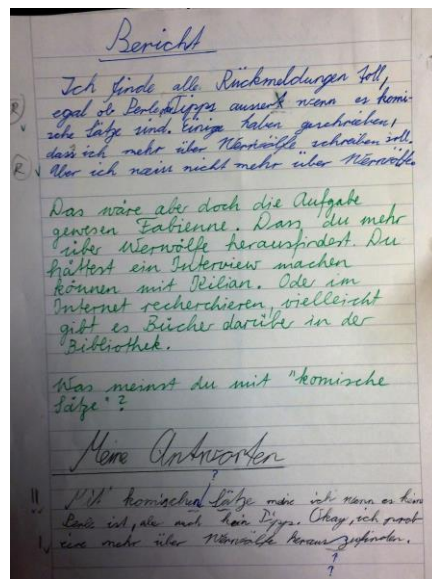 Bericht
Ich finde alle Rückmeldungen toll,
egal ob Perle Tipps ausser wenn es komi-
sche Sätze sind. Einige haben geschrieben,
dass ich mehr über Werwölfe schreiben soll.
Aber ich nicht mehr über Werwölfe
Das wäre aber doch die Aufgabe
gewesen Fabienne. Dass du mehr
über Werwölfe herausfindest. Du
hättest ein Interview machen
können mit Kilian. Oder im
Internet recherchieren, vielleicht
gibt es Bücher darüber in der
Bibliothek.
Was meinst du mit "komische
Sätze"?
Meine Antworten
?
!! Mit komischen Sätze meine ich wenn es keine
Perle ist, auch kein Tipps. Okay, ich prob
! iere mehr über Werwölfe heraus zufinden.
?
?